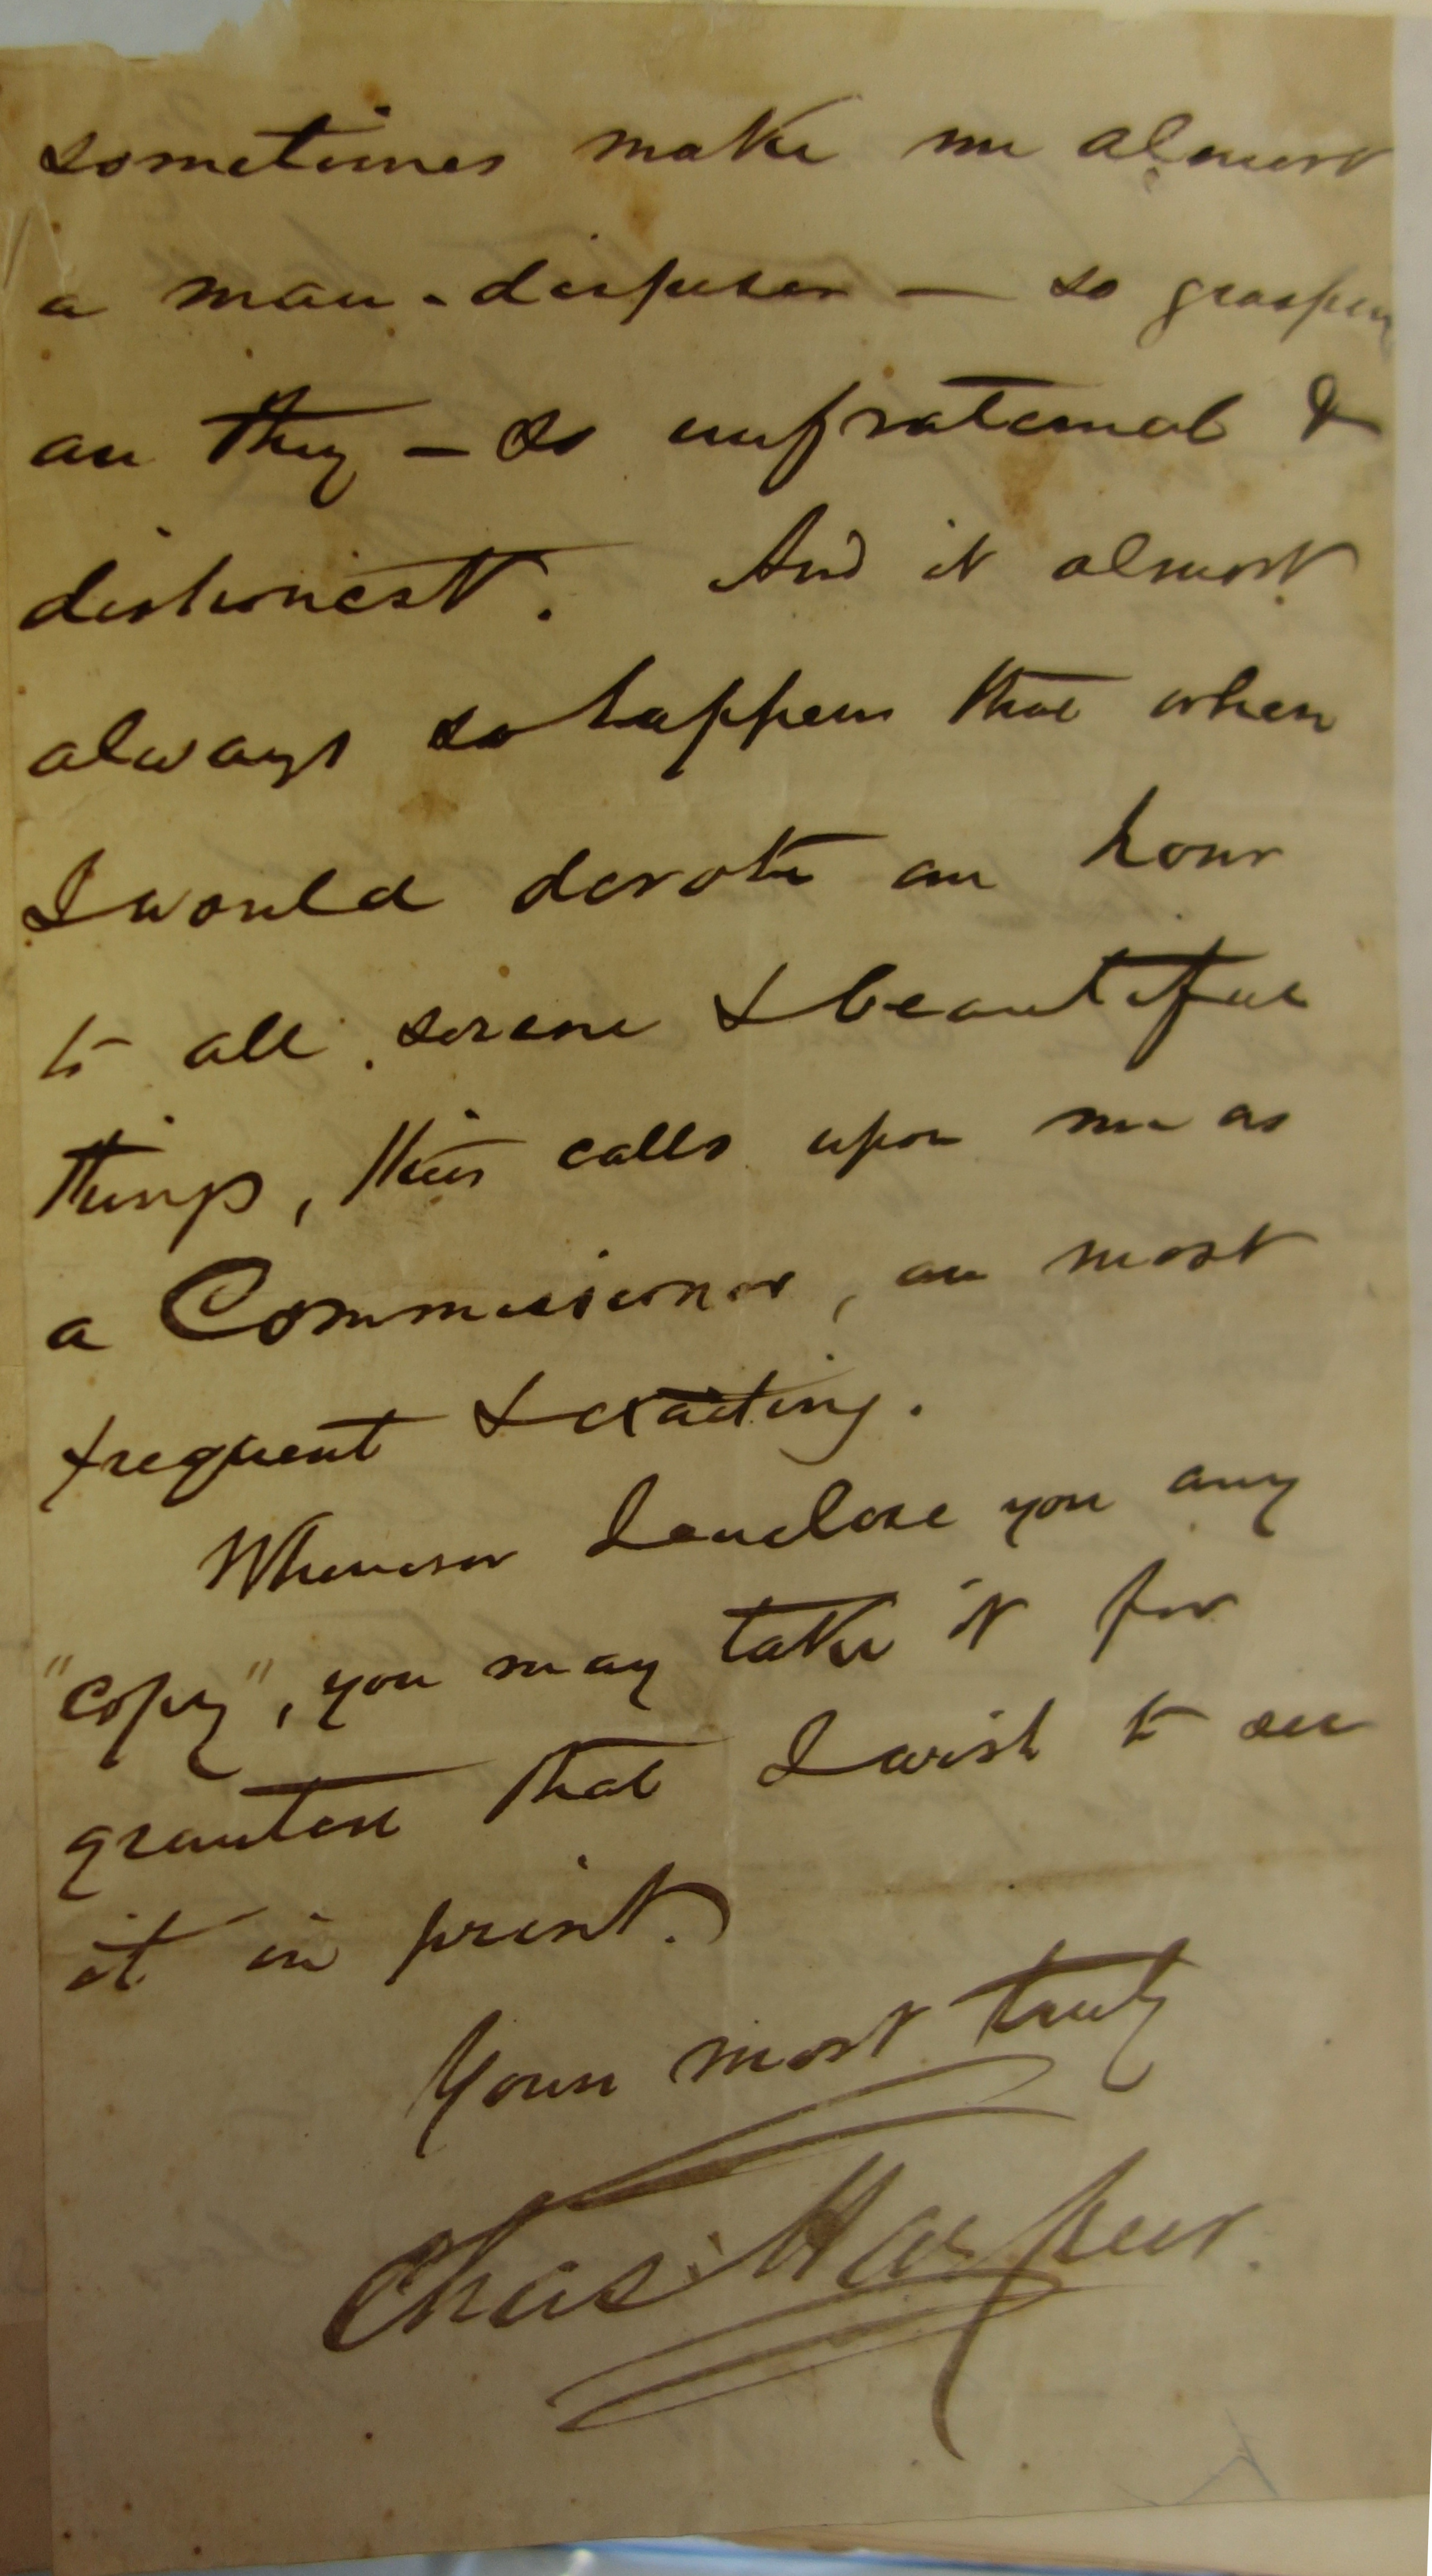 sometimes make me almost
a man-despiser — so grasping
are they — so unfraternal &
dishonest. And it almost
always so happens that when
I would devote an hour
to all serene & beautiful
things, their calls upon me as
a Commissioner, are most
frequent & exacting.
Whenever I enclose you any
"copy", you may take it for
granted that I wish to see
it in print.
Yours most truly
Chas. Harpur.